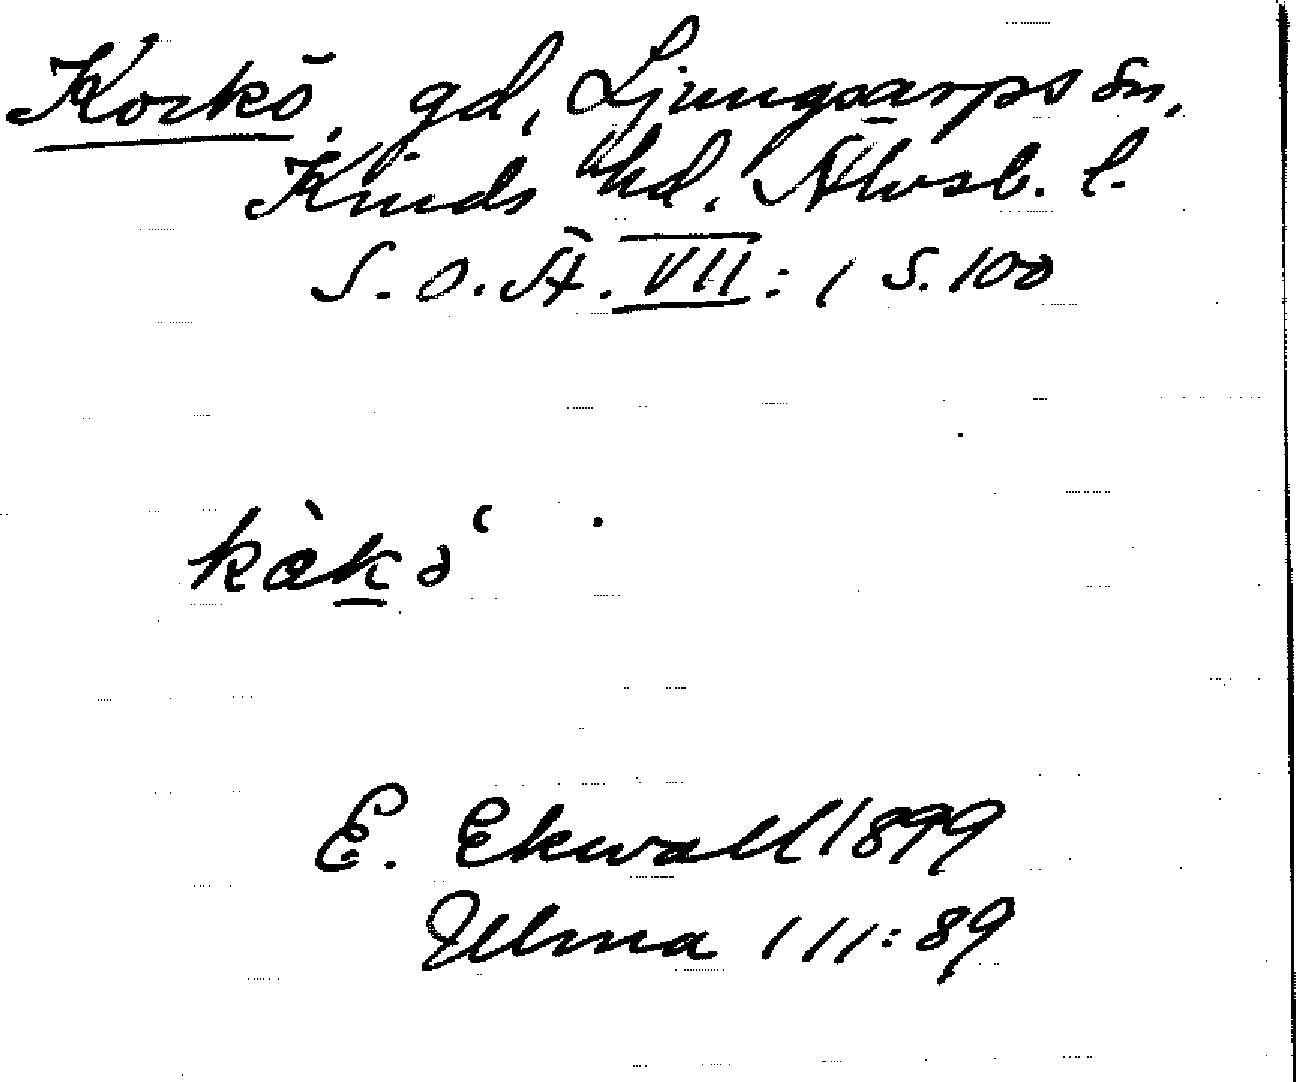 Korkö, gd, Ljungsarps sn,
Kinds hd. Älvsb. l.
S. O. Ä. VII: 1 S. 100
E. Ekwall 1899
Ulma 111:89